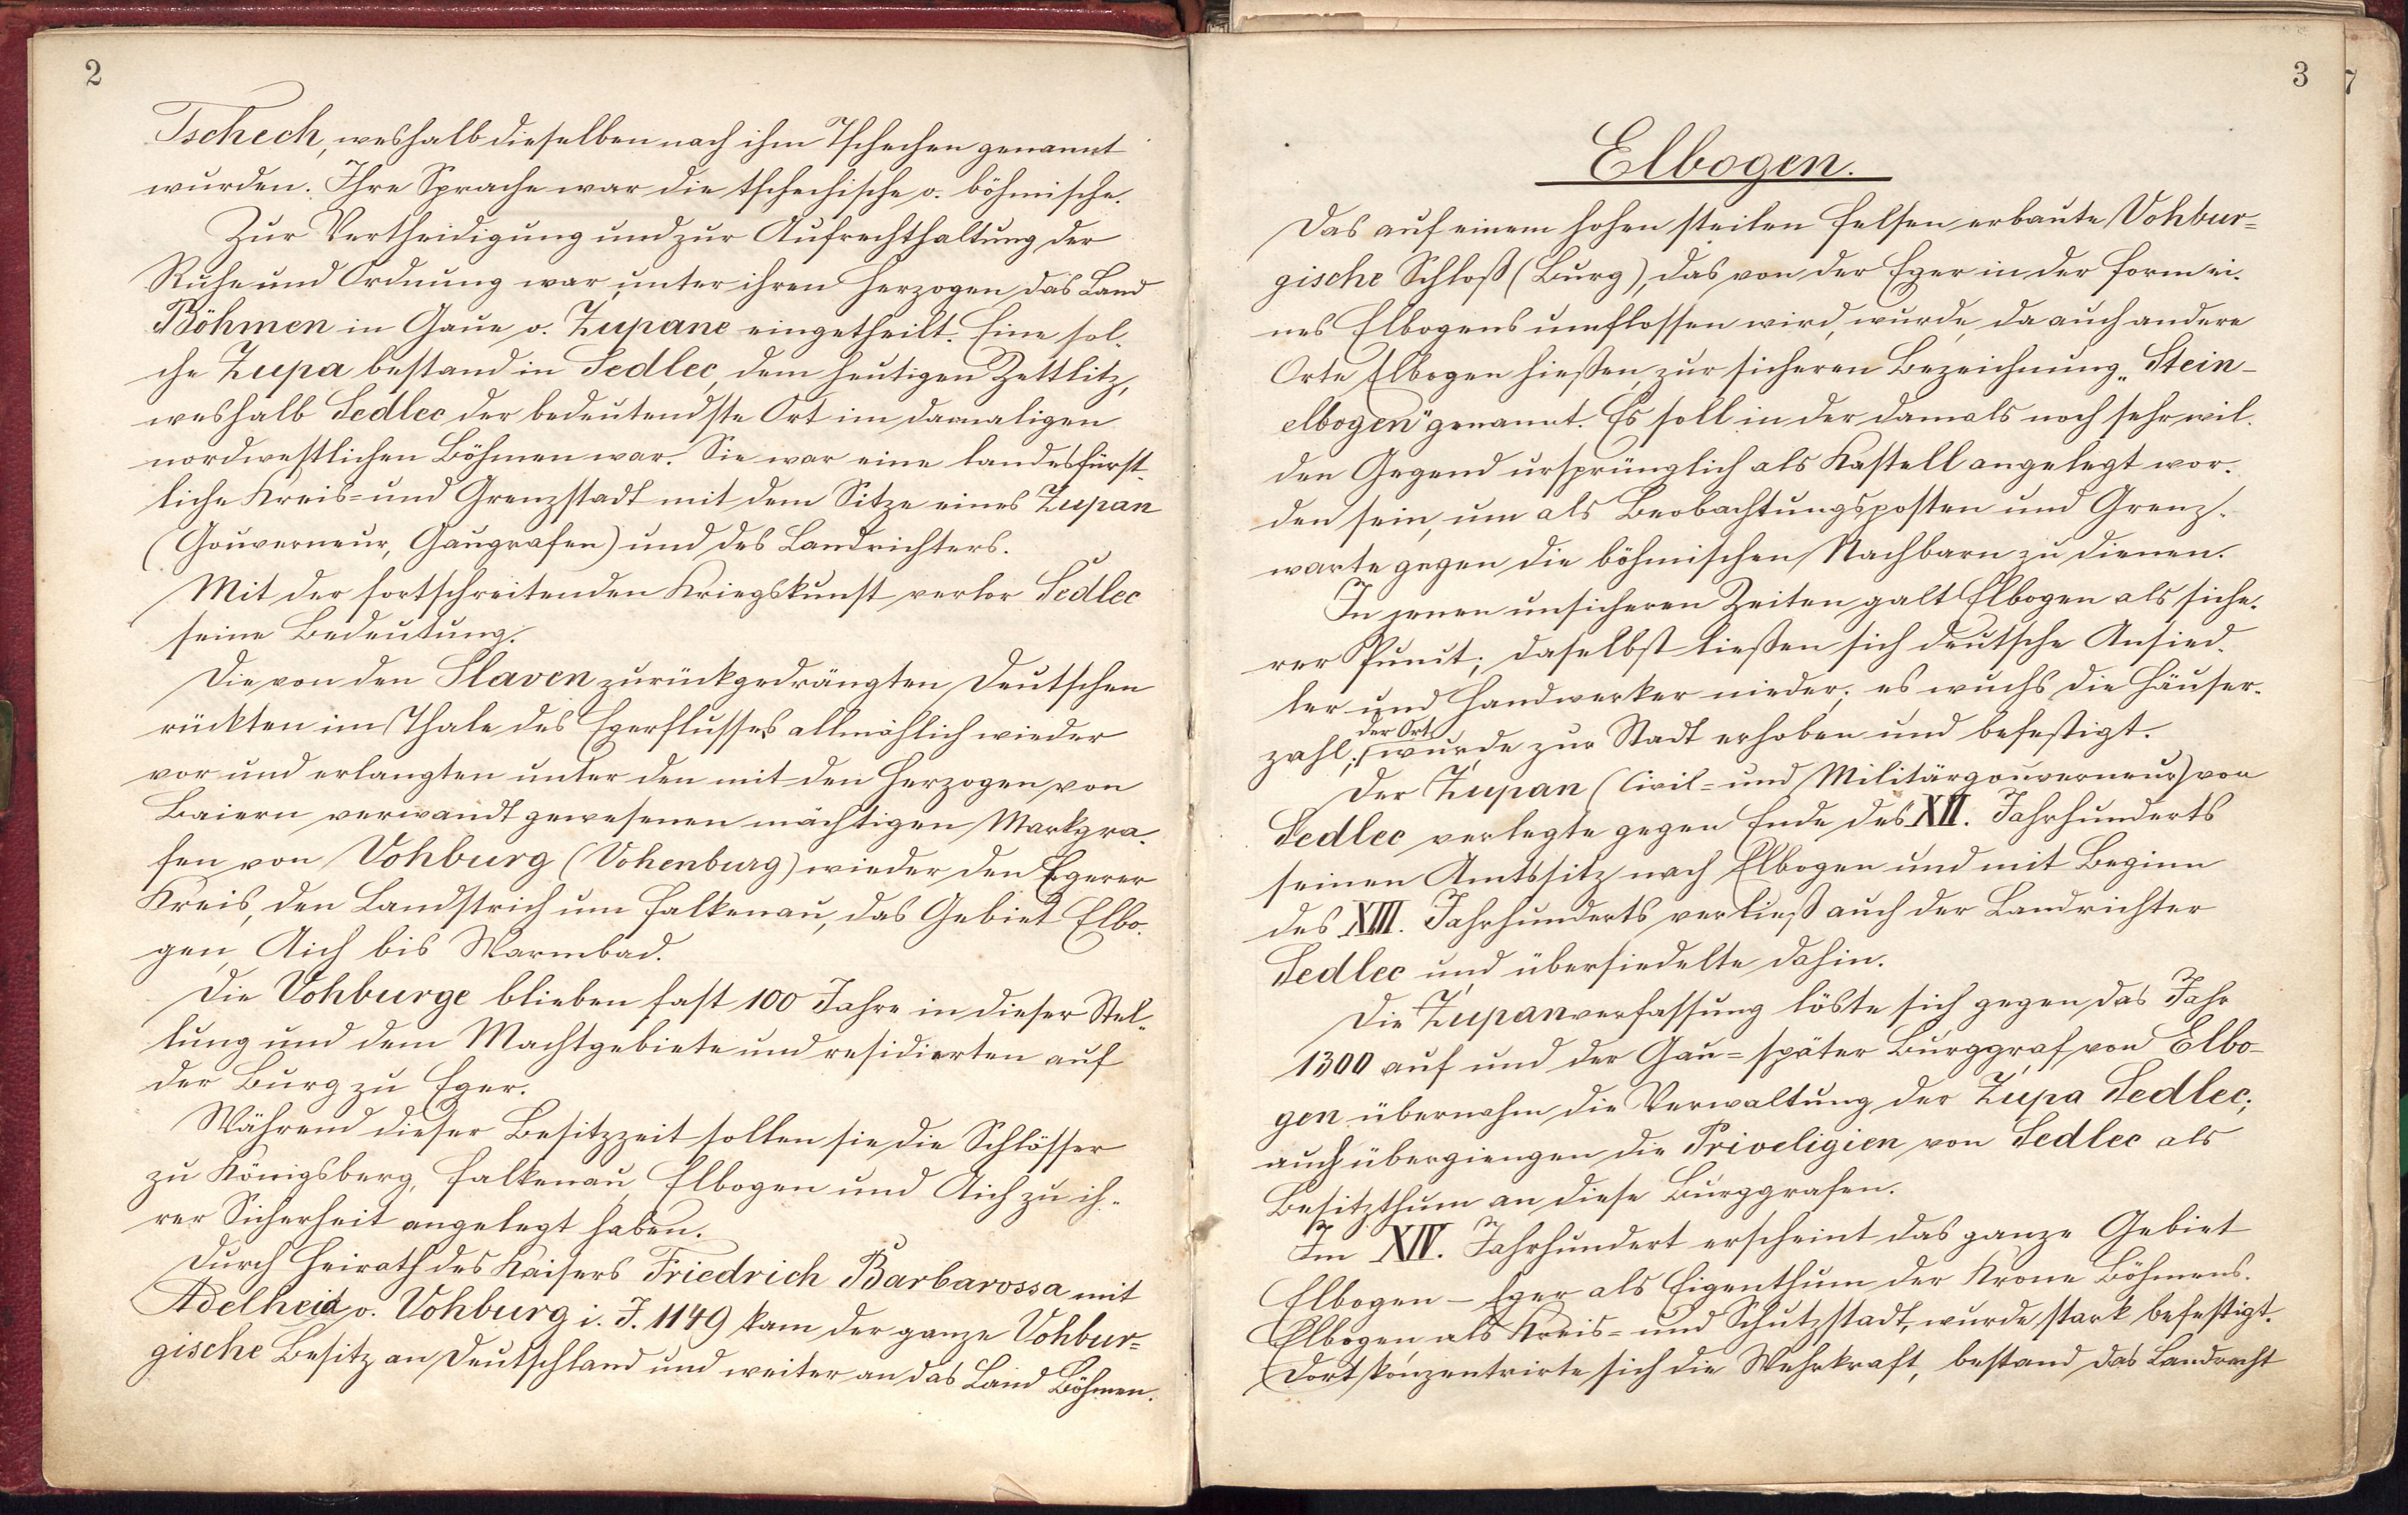 2
Tschech, weshalb dieselben nach ihm Tschechen genannt
wurden. Ihre Sprache war die tschechische o. böhmische.
Zur Vertheidigung und zur Aufrechthaltung der
Ruhe und Ordnung war unter ihren Herzogen das Land
Böhmen in Gaue o. Župane eingetheilt. Eine sol-
che Zupa bestand in Sedlec, dem heutigen Zettlitz,
weshalb Sedlec der bedeutendste Ort im damaligen
nordwestlichen Böhmen war. Sie war eine landesfürst-
liche Kreis- und Grenzstadt mit dem Sitze eines Zupan
(Gouverneur, Gaugrafen) und des Landrichters.
Mit der fortschreitenden Kriegskunst verlor Sedlec
seine Bedeutung.
Die von den Slaven zurückgedrängten Deutschen
rückten im Thale des Egerflusses allmählich wieder
vor und erlangten unter den mit den Herzogen von
Baiern verwandt gewesenen mächtigen Markgra-
fen von Vohburg (Vohenburg) wieder den Egerer
Kreis, den Landstrich um Falkenau, das Gebiet Elbo-
gen, Aich bis Warmbad.
Die Vohburge blieben fast 100 Jahre in dieser Stel-
lung und dem Machtgebiete und residierten auf
der Burg zu Eger.
Während dieser Besitzzeit sollen sie die Schlösser
zu Königsberg, Falkenau, Elbogen und Aich zu ih-
rer Sicherheit angelegt haben.
Durch Heirath des Kaisers Friedrich Barbarossa mit
Adelheid v. Vohburg i. J. 1149 kam der ganze Vohbur-
gische Besitz an Deutschland und weiter an das Land Böhmen.
3
7
Elbogen.
Das auf einem hohen steilen Felsen erbaute Vohbur-
gische Schloß (Burg), das von der Eger in der Form ei-
nes Elbogens umflossen wird, wurde, da auch andere
Orte Elbogen hießen, zur sicheren Bezeichnung „Stein-
elbogen" genannt. Es soll in der damals noch sehr wil-
den Gegend ursprünglich als Kastell angelegt wor-
den sein, um als Beobachtungsposten und Grenz-
warte gegen die böhmischen Nachbarn zu dienen.
In jenen unsicheren Zeiten galt Elbogen als siche-
rer Punct; daselbst ließen sich deutsche Ansied-
ler und Handwerker nieder; es wuchs die Häuser-
der Ort
zahl; wurde zur Stadt erhoben und befestigt.
Der Župan (Civil- und Militärgouverneur) von
Sedlec verlegte gegen Ende des XII. Jahrhunderts
seinen Amtssitz nach Elbogen und mit Beginn
des XIII. Jahrhunderts verließ auch der Landrichter
Sedlec und übersiedelte dahin.
Die Županverfassung löste sich gegen das Jahr
1300 auf und der Gau- später Burggraf von Elbo-
gen übernahm die Verwaltung der Župa Sedlec;
auch übergiengen die Priveligien von Sedlec als
Besitzthum an diese Burggrafen.
Im XIV. Jahrhundert erscheint das ganze Gebiet
Elbogen – Eger als Eigenthum der Krone Böhmens.
Elbogen, als Kreis- und Schutzstadt, wurde stark befestigt.
Dort konzentrirte sich die Wehrkraft, bestand das Landrecht